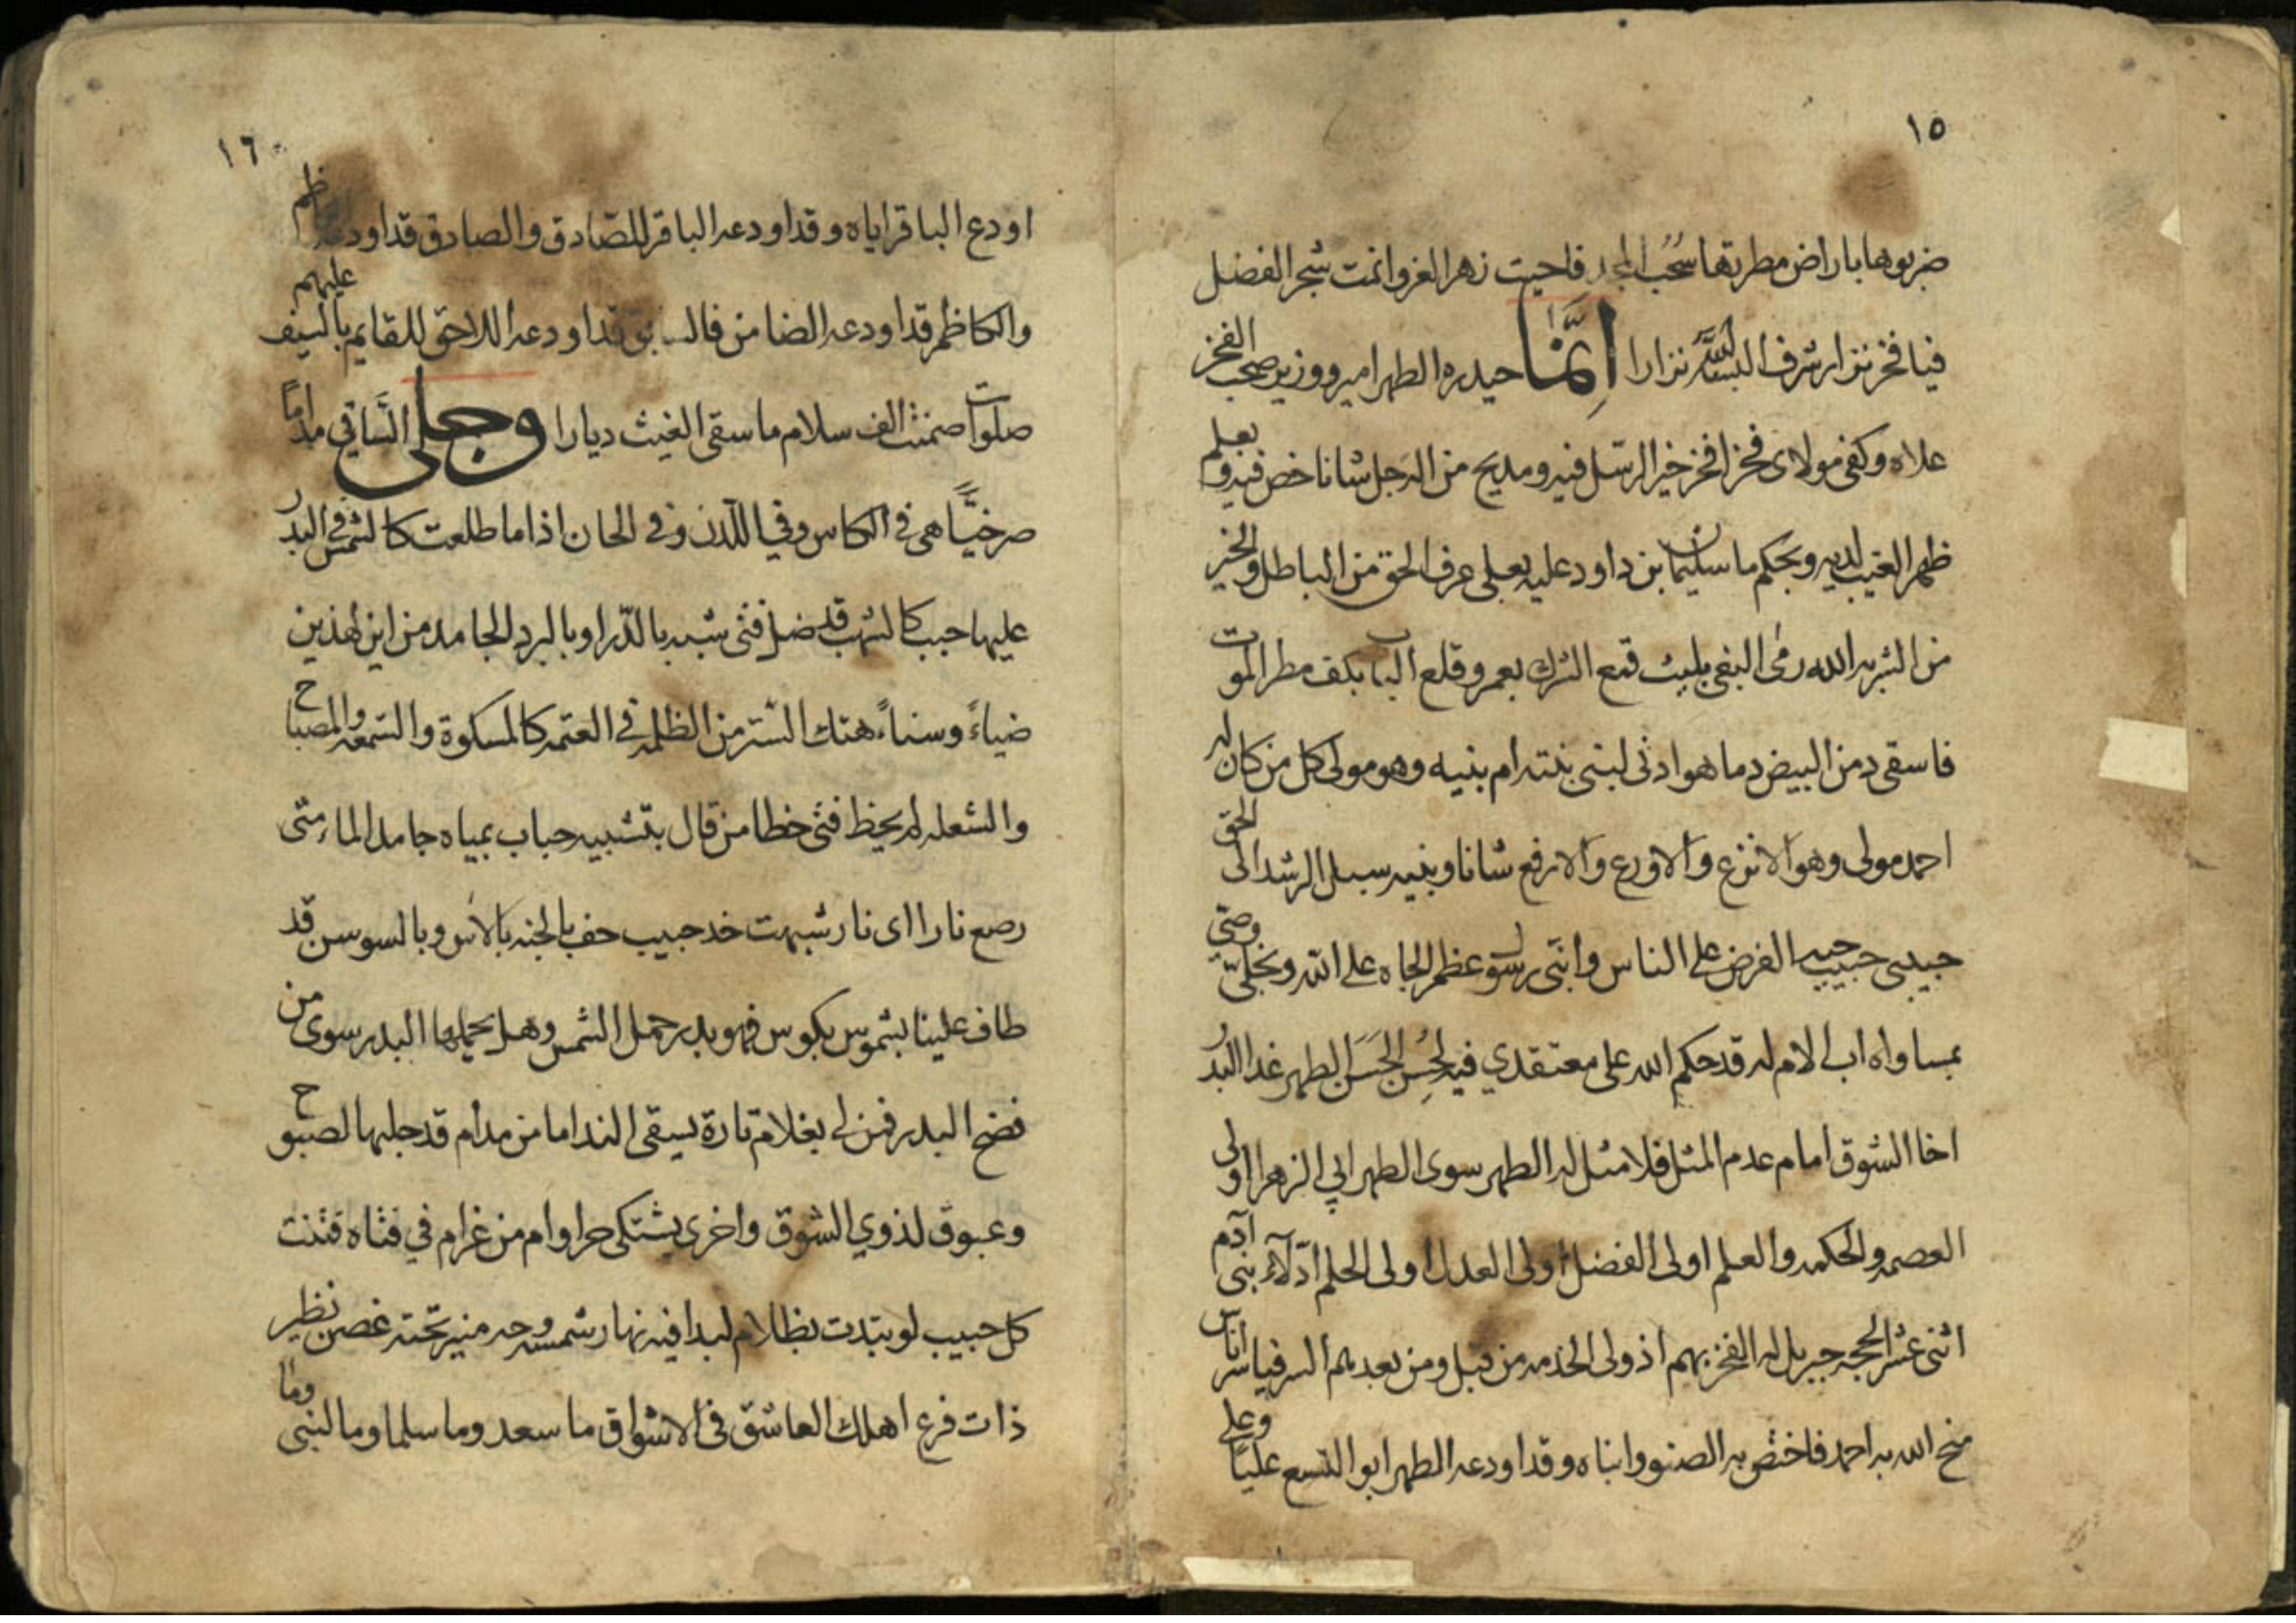 ١٥
ضربوها باراض مطرتها سحب المجد فاحيت زهر العز وانمت شجر الفضل
فيا فخر نزار شرف الله نزارا انما حيدره الطهر امير ووزير صحب الفخر
علاه وكفى مولاى فخرا فخر خير الرسل فيه ومديح من الرجل شانا خص فيه وبعلم
ظهر الغيب لديه وبحكم ما سليمان بن داود عليه بعلى عرف الحق من الباطل والخير
من الشر به الله رمى البغى بليث قمع الشرك بعمرو قلع الباب بكف مطر الموت
فاسقى من البيض دما هو ادنى لبنى بنته ام بنيه وهو مولى كل من كان له
احمد مولى وهو الانزع والاورع والارفع شانا وبنيه سبل الرشد الى الحق
حبيبى حبيب حبه الفرض على الناس وانى رسول عظم الجاه على الله ونجلى وصي
بمساواه اب لام له قد حكم الله على معتقدي فيه لحسن الحسن الطهر غدا البدر
اخا الشوق امام عدم المثل فلا مثل له الطهر سوى الطهر ابي الزهرا اولى
العصمه والحكمه والعلم اولى الفضل اولى العدل اولى الحلم ادلاء بنى آدم
اثنى عشر الحجه جبريل له الفخر بهم اذ ولى الخدمه من قبل ومن بعد بهم السر فيا سر اناس
منح الله به احمد فاختص به الصنو وابناه وقد اودعه الطهر ابو التسع عليا وعلي
١٦
اودع الباقر اياه وقد اودعه الباقر للصادق والصادق قد اودعه الكاظم
والكاظم قد اودعه الضامن فالسابق قد اودعه اللاحق للقايم بالسيف عليهم
صلوات ضمنت الف سلام ما سقى الغيث ديارا وجلى الساقي مداما
صرخديا هى فى الكاس وفي اللدن وفى الحان اذا ما طلعت كالشمس فى البدر
عليها حبب كالشهب قد ضل فتى شبه بالدر او بالبرد الجامد من اين لهذين
ضياء وسناء هتك الستر من الظلمه فى العتمه كالمسكوة والشمعه والمصباح
والشعله لم يحظ فتى خطا من قال بتشبيه حباب بمياه جامد الماء متى
رصع نارا اى نار شبهت خد حبيب حف بالجنه بالاس وبالسوسن قد
طاف علينا بشموس بكوس فهو بدر حمل الشمس وهل يحملها البدر سوى من
فضح البدر فمن لى بغلام تارة يسقى النداما من مدام قد جلبها لصبوح
وعبوق لذوي الشوق واخرى يشتكى حر اوام من غرام في فتاه فتنت
كل حبيب لو بتدت بظلام لبدا فيه نهار شمسه وجه منير تحته غصن نظير
ذات فرع اهلك العاشق فى الاشواق ما سعد وما سلما وما لبنى وما